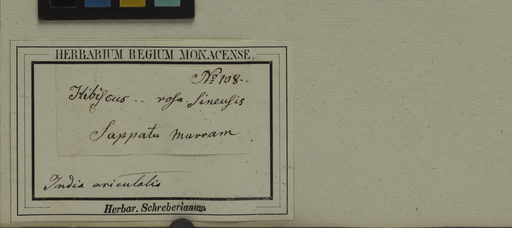 HERBARIUM REGIUM MONACENSE.
No 108.
Hibiscus .. rosa Sinensis
Sappatu Marram
India orientalis
Herbar. Schreberianum